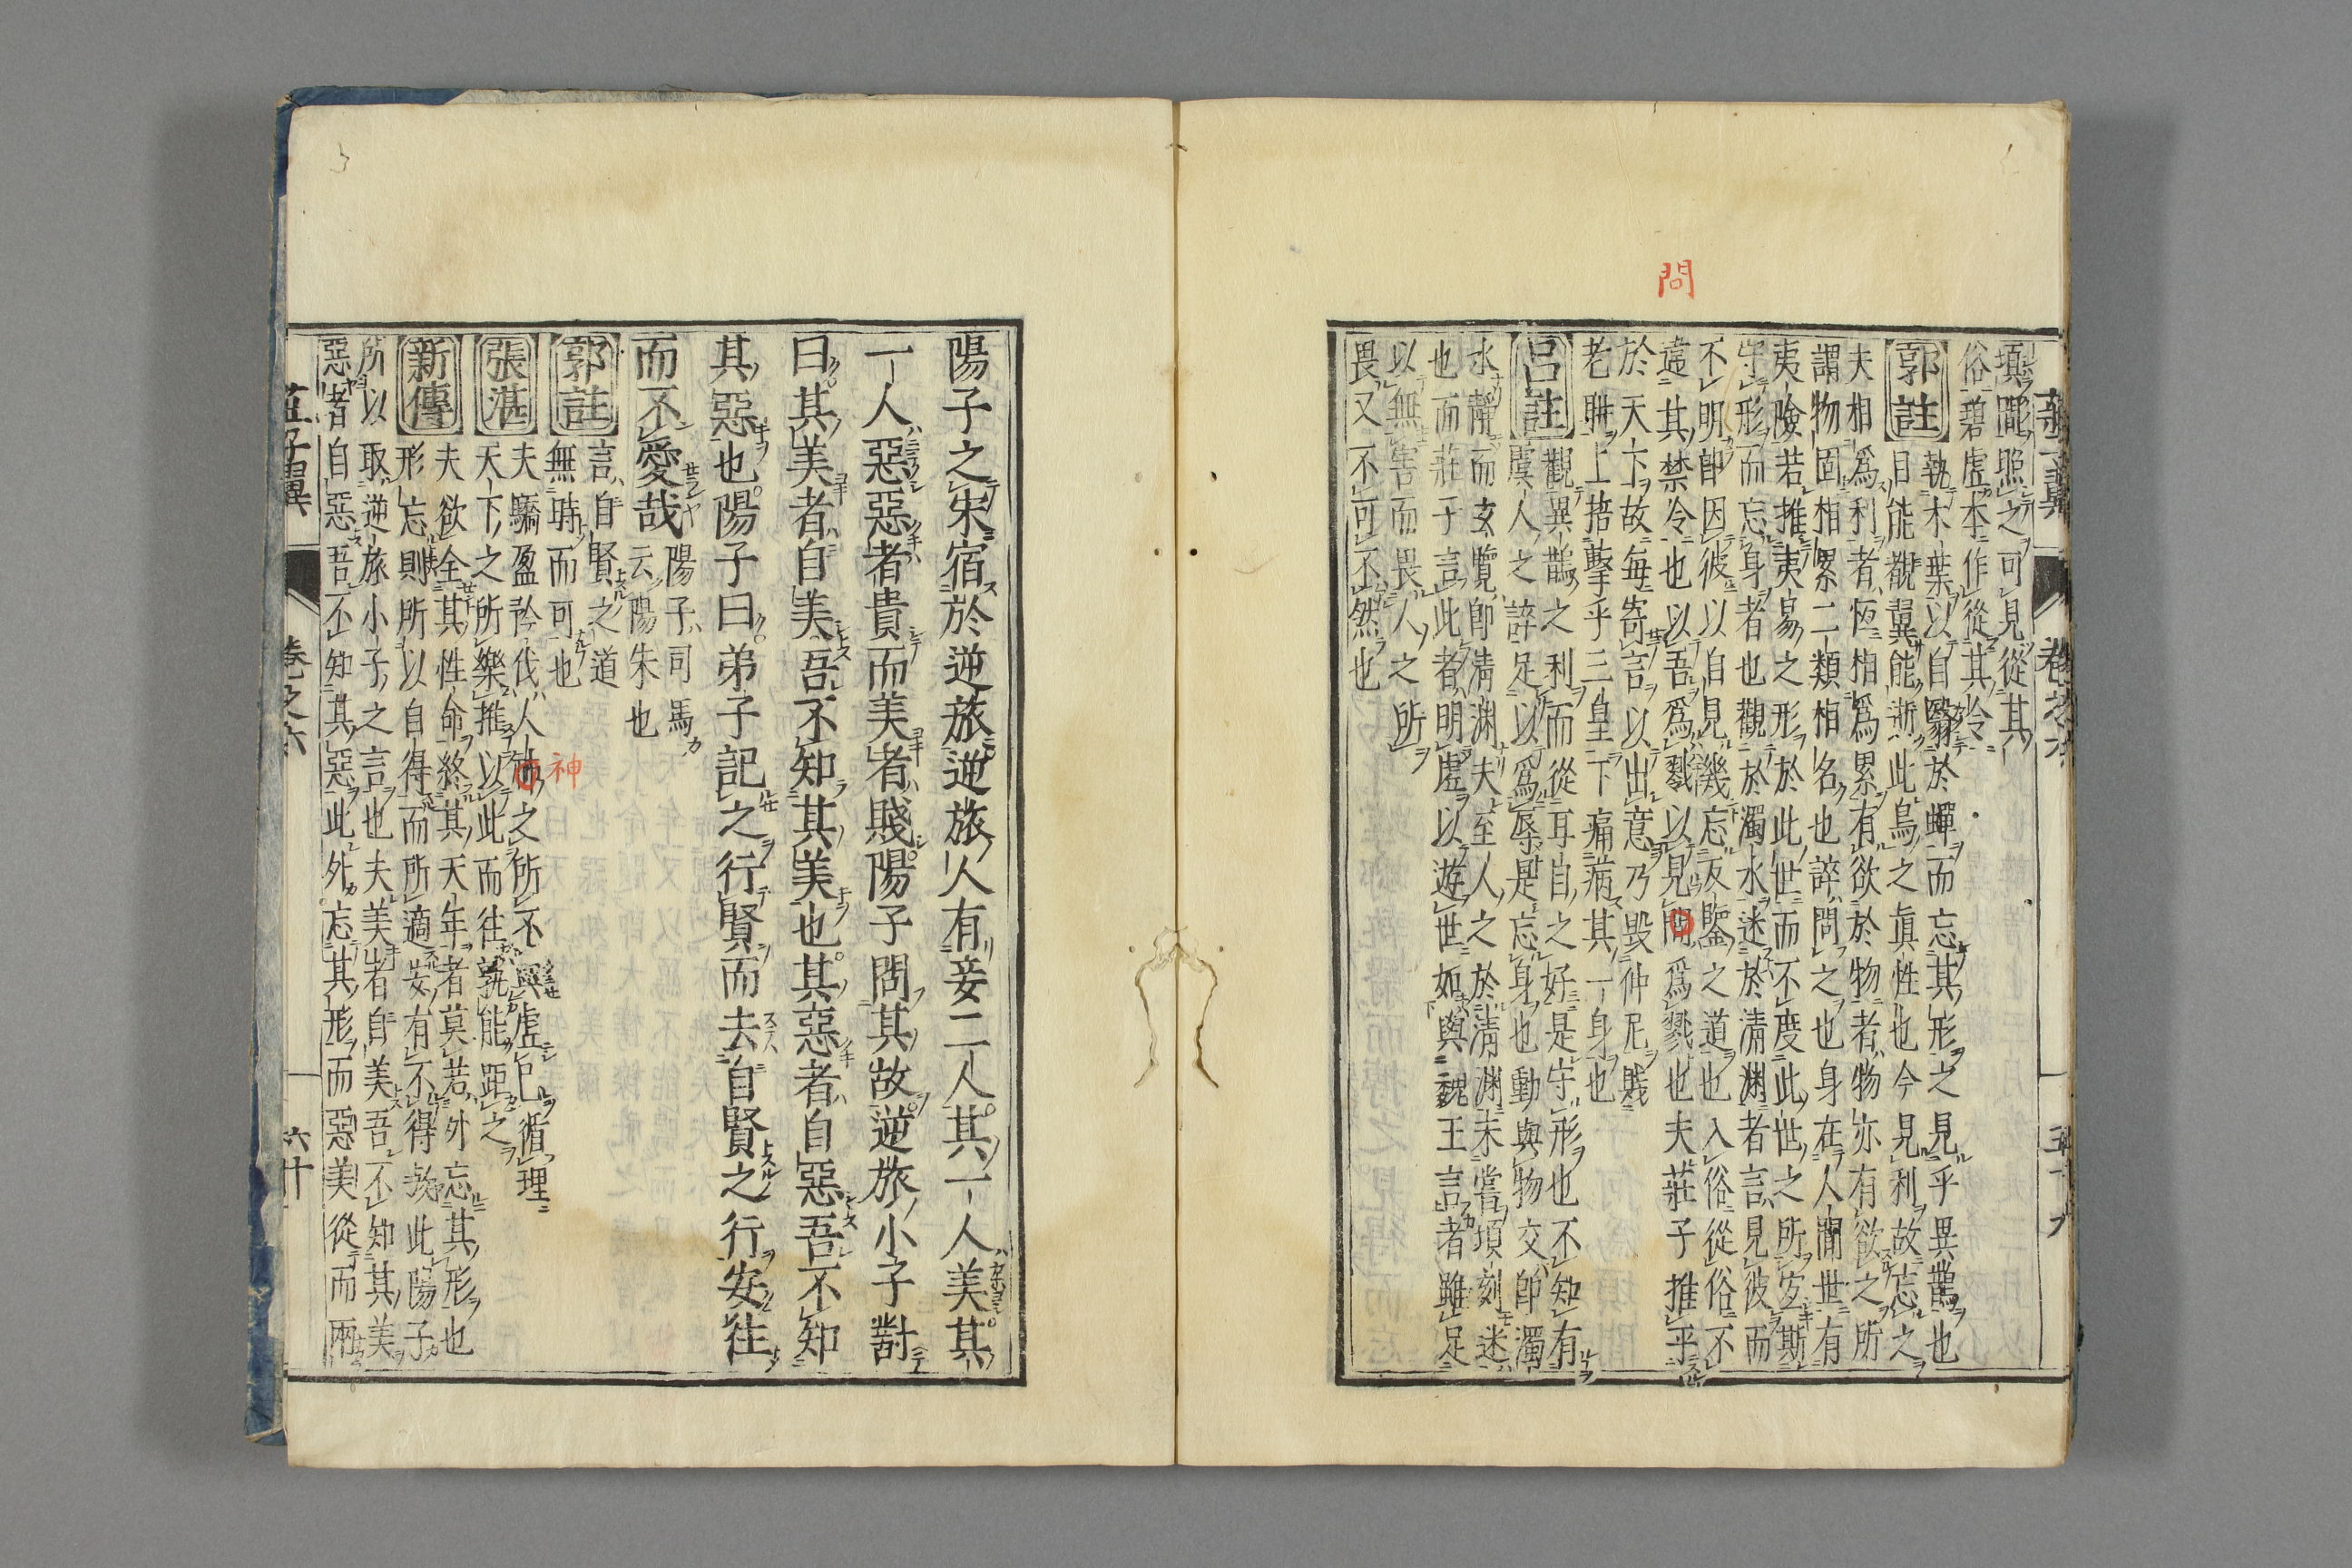 問
頃間照之可見從其
俗碧虛本作從其令
郭註
執木葉以自翳於蟬而忘其形之見乎異鵲也
目能覩翼能逝此鳥之眞性也今見利故忘之
夫相爲利者恆相爲累有欲於物者物亦有欲之所
謂物固相累二類相召也誶問之也身在人間世有
夷險若推夷易之形於此世而不度此世之所宜斯
守形而忘身者也觀於濁水迷於清淵者言見彼而
不明卽因彼以自見幾忘反鑒之道也入俗從俗不
違其禁令也以吾爲戮以見問爲戮也夫莊子推平
於天下故每寄言以出意乃毀仲尼賤
老聃上掊擊乎三皇下痛病其一身也
呂註
觀異鵲之利而從耳目之好是守形也不知有
虞人之誶足以爲辱是忘身也動與物交卽濁
水靜而玄覽卽淸淵夫至人之於淸淵未嘗頃刻迷
也而莊子言此者明虛以遊世如與魏王言者雖足
以無害而畏人之所
畏又不可不然也
五十九
陽子之宋宿於逆旅逆旅人有妾二人其一人美其
一人惡惡者貴而美者賤陽子問其故逆旅小子對
曰其美者自美吾不知其美也其惡者自惡吾不知
其惡也陽子曰弟子記之行賢而去自賢之行安往
而不愛哉
陽子司馬
云陽朱也
郭註
言自賢之道
無時而可也
張湛
夫驕盈矜伐人神之所不與虛已循理
天下之所樂推以此而往孰能距之
神
新傳
夫欲全其性命終其天年者莫若外忘其形也
形忘則所以自得而所適安有不得哉此陽子
所以取逆旅小子之言也夫美者自美吾不知其美
惡者自惡吾不知其惡此外忘其形而惡美從而兩
莊子翼
卷之六
六十